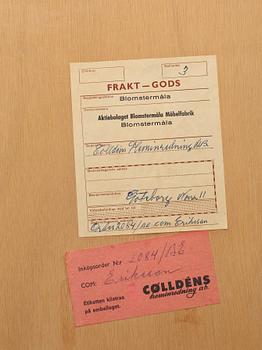 3
FRAKT—GODS
Blomstermåla
Aktiebolaget Blomstermåla Möbelfabrik
Blomstermåla
Colldéns Heminredning AB
Göteborg Norra 11
Order 2084/AE com Eriksson
Inköpsorder Nr 2084/AE
COM: Eriksson
Etiketten klistras
på emballaget.
CØLLDÉNS
heminredning ab.